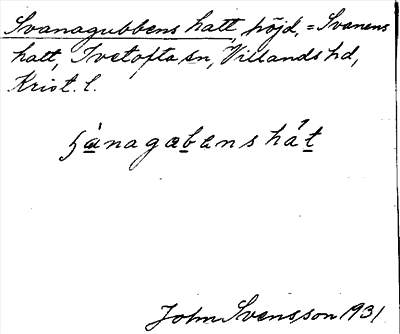 Svanagubbens hatt, höjd, = Svanens
hatt, Ivetofta sn, Villands hd,
Krist. l.
hátt
John Svensson 1931